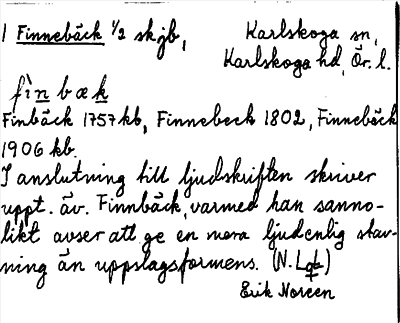 1 Finnebäck 1/2 skjb, Karlskoga sn,
Karlskoga hd, Ör. l.
fìnbæk
Finbäck 1757 kb, Finnebeck 1802, Finnebäck
1906 kb.
I anslutning till ljudskriften skriver
uppt. äv. Finnbäck, varmed han sanno-
likt avser att ge en mera ljudenlig stav-
ning än uppslagsformens. (N. L
Erik Noreen